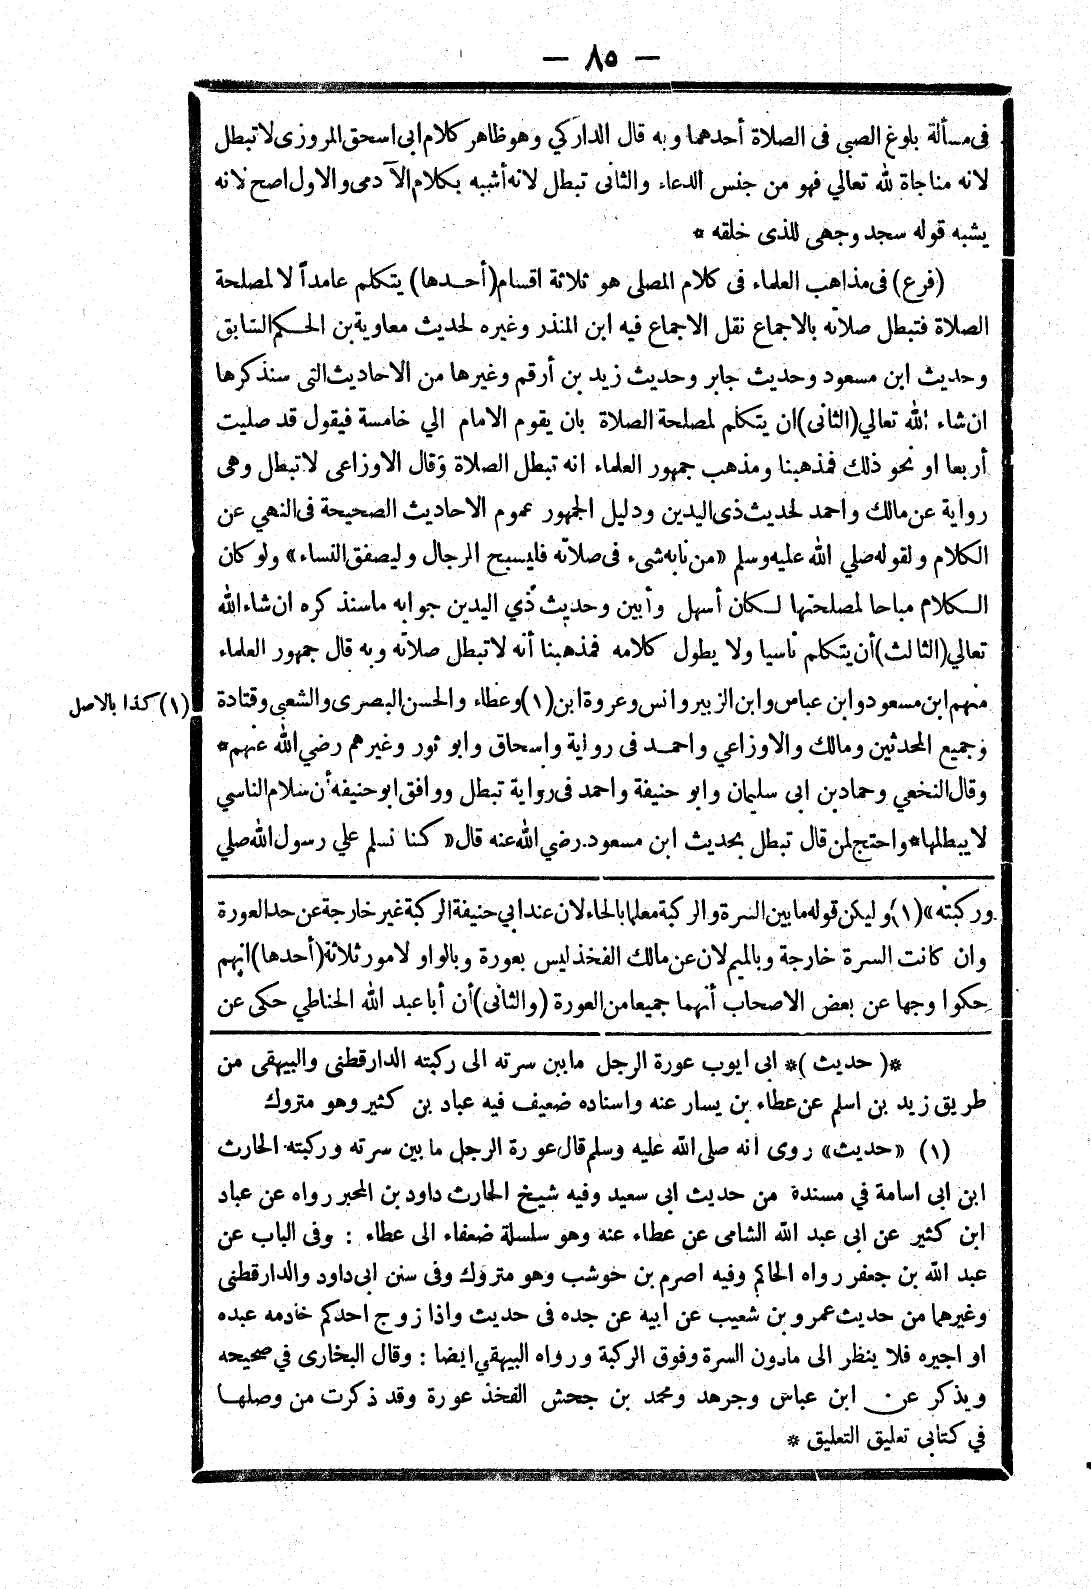 — ٨٥ —
فى مسألة بلوغ الصبي فى الصلاة أحدهما وبه قال الداركي وهو ظاهر كلام ابى اسحق المروزى لا تبطل
لانه مناجاة لله تعالي فهو من جنس الدعاء والثانى تبطل لانه أشبه بكلام الآدمى والاول اصح لانه
يشبه قوله سجد وجهى للذى خلقه *
(فرع) فى مذاهب العلماء فى كلام المصلى هو ثلاثة اقسام (أحدها) يتكلم عامداً لا لمصلحة
الصلاة فتبطل صلاته بالاجماع نقل الاجماع فيه ابن المنذر وغيره لحديث معاوية بن الحكم السابق
وحديث ابن مسعود وحديث جابر وحديث زيد بن أرقم وغيرها من الاحاديث التى سنذكرها
ان شاء الله تعالي (الثانى) ان يتكلم لمصلحة الصلاة بان يقوم الامام الي خامسة فيقول قد صليت
أربعا او نحو ذلك فمذهبنا ومذهب جمهور العلماء انه تبطل الصلاة وقال الاوزاعى لا تبطل وهى
رواية عن مالك واحمد لحديث ذى اليدين ودليل الجمهور عموم الاحاديث الصحيحة فى النهي عن
الكلام ولقوله صلي الله عليه وسلم «من نابه شىء فى صلاته فليسبح الرجال وليصفق النساء» ولو كان
الكلام مباحا لمصلحتها لكان أسهل وأبين وحديث ذي اليدين جوابه ما سنذكره ان شاء الله
تعالي (الثالث) أن يتكلم ناسيا ولا يطول كلامه فمذهبنا أنه لا تبطل صلاته وبه قال جمهور العلماء
منهم ابن مسعود وابن عباس وابن الزبير وانس وعروة ابن (١) وعطاء والحسن البصرى والشعبى وقتادة
(١) كذا بالاصل
وجميع المحدثين ومالك والاوزاعي واحمد فى رواية واسحاق وابو ثور وغيرهم رضي الله عنهم *
وقال النخعي وحماد بن ابى سليمان وابو حنيفة واحمد فى رواية تبطل ووافق ابو حنيفه أن سلام الناسي
لا يبطلها * واحتج لمن قال تبطل بحديث ابن مسعود. رضي الله عنه قال «كنا نسلم علي رسول الله صلي
وركبته» (١) وليكن قوله ما بين السرة والركبة معلما بالحاء لان عند ابي حنيفة الركبة غير خارجة عن حد العورة
وان كانت السرة خارجة وبالميم لان عن مالك الفخذ ليس بعورة وبالواو لامور ثلاثة (أحدها) انهم
حكوا وجها عن بعض الاصحاب أنهما جميعا من العورة (والثانى) أن أبا عبد الله الحناطي حكى عن
*(حديث)* ابى ايوب عورة الرجل ما بين سرته الى ركبته الدارقطنى والبيهقى من
طريق زيد بن اسلم عن عطاء بن يسار عنه واسناده ضعيف فيه عباد بن كثير وهو متروك
(١) «حديث» روى انه صلى الله عليه وسلم قال عورة الرجل ما بين سرته وركبته الحارث
ابن ابى اسامة في مسندة من حديث ابى سعيد وفيه شيخ الحارث داود بن المحبر رواه عن عباد
ابن كثير عن ابى عبد الله الشامى عن عطاء عنه وهو سلسلة ضعفاء الى عطاء : وفى الباب عن
عبد الله بن جعفر رواه الحاكم وفيه اصرم بن حوشب وهو متروك وفى سنن ابى داود والدارقطنى
وغيرهما من حديث عمرو بن شعيب عن ابيه عن جده فى حديث واذا زوج احدكم خادمه عبده
او اجيره فلا ينظر الى مادون السرة وفوق الركبة ورواه البيهقي ايضا : وقال البخارى في صحيحه
ويذكر عن ابن عباس وجرهد ومحمد بن جحش الفخذ عورة وقد ذكرت من وصلها
في كتابى تعليق التعليق *